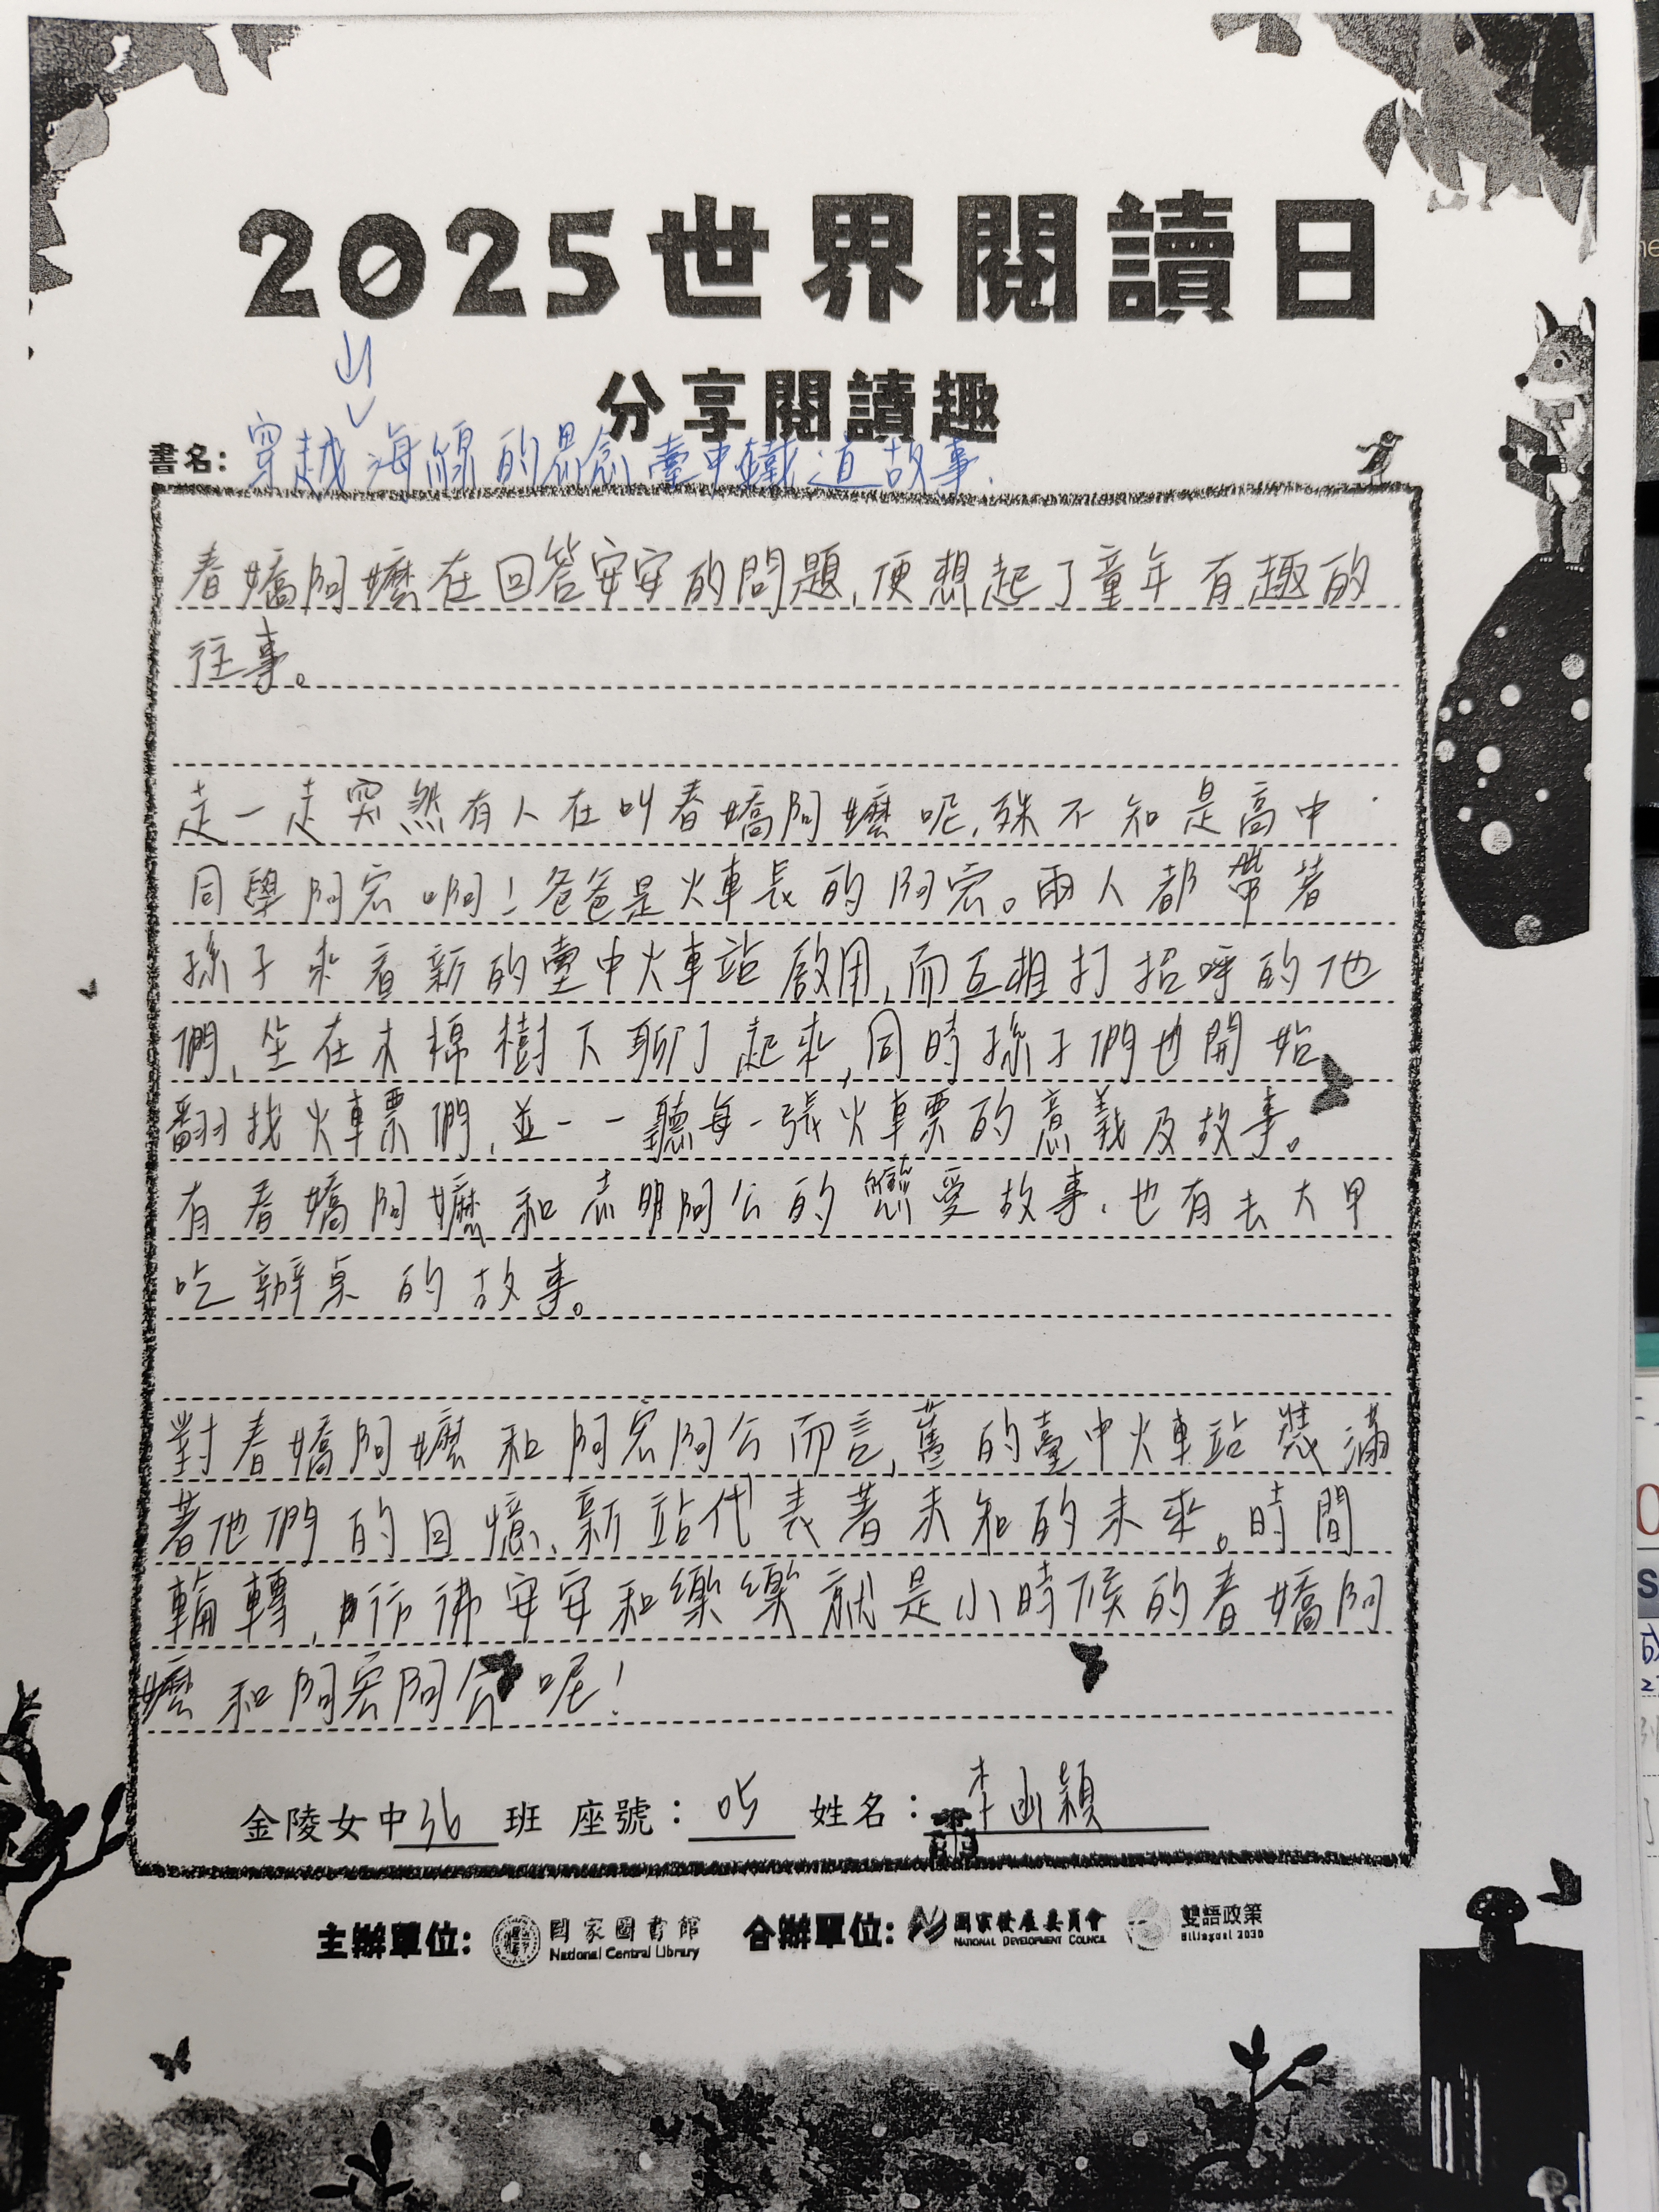 2025世界閱讀日
分享閱讀趣
書名：穿越山海線的思念臺中鐵道故事.
春嬌阿嬤在回答安安的問題，便想起了童年有趣的
往事。
走一走突然有人在叫春嬌阿嬤呢，殊不知是高中
同學阿宏啊！爸爸是火車長的阿宏。兩人都帶著
孫子來看新的臺中火車站啟用，而互相打招呼的他
們，坐在木棉樹下聊了起來，同時孫子們也開始
翻找火車票們，並一一聽每一張火車票的意義及故事。
有春嬌阿嬤和志明阿公的戀愛故事，也有去大甲
吃辦桌的故事。
對春嬌阿嬤和阿宏阿公而言，舊的臺中火車站裝滿
著他們的回憶、新站代表著未知的未來。時間
輪轉，彷彿安安和樂樂就是小時候的春嬌阿
嬤和阿宏阿公呢！
金陵女中36班 座號：05 姓名：李函穎
主辦單位：國家圖書館 合辦單位：國家發展委員會 雙語政策
National Central Library NATIONAL DEVELOPMENT COUNCIL Bilingual 2030